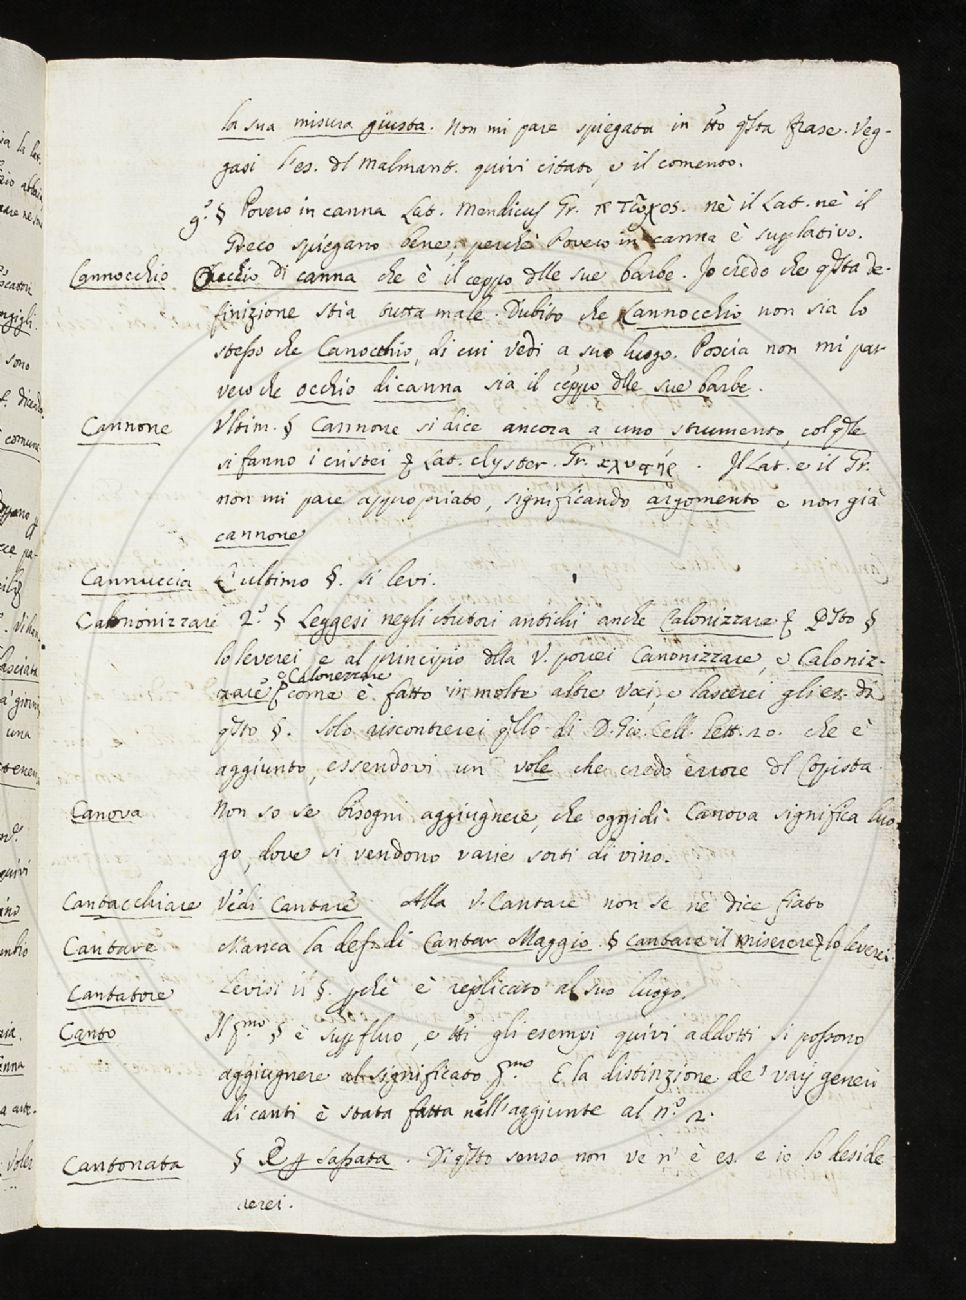 la sua misura giusta. Non mi pare spiegata in tto qsta frase. Veg-
gasi l'es. dl Malmant. quivi citato, e il comento.
9.° § Povero in canna Lat. Mendicus Gr. πτωχος. nè il Lat. nè il
Greco spiegano bene, perchè Povero in canna è suplativo.
Cannocchio Occhio di canna che è il ceppo dlle sue barbe. Io credo che qsta de-
finizione stia tutta male. Dubito che Cannocchio non sia lo
stesso che Canocchio, di cui vedi a suo luogo. Poscia non mi par
vero che occhio di canna sia il ceppo dlle sue barbe.
Cannone Ultim. § Cannone si dice ancora a uno strumento, col qle
si fanno i cristei Lat. clyster. Gr. . Il Lat. e il Gr.
non mi pare appropriato, significando argomento e non già
cannone
Cannuccia L'ultimo §. si levi.
Canonizzare 2.° § Leggesi negli Autori antichi anche Calonizzare Qsto §
lo leverei, e al principio dlla V. porrei Canonizzare, e Caloniz-
o Calonezzare
zare come è fatto in molte altre voci, e lascerei gli es. di
qsto §. Solo riscontrerei qllo di D. Gio. Cell. lett. 20. che è
aggiunto, essendovi un vole che credo errore dl Copista.
Canova Non so se bisogni aggiugnere, che oggidì Canova significa luo-
go, dove si vendono varie sorti di vino.
Cantacchiare Vedi Cantare Alla V. Cantare non se ne dice fiato
Cantare Manca la def. di Cantar Maggio. § cantare il miserere lo leverei
Cantatore Levisi il §. pchè è replicato al suo luogo.
Canto Il pmo § è supfluo, e tti gli esempi quivi addotti si possono
aggiugnere al significato pmo. E la distinzione de' varj generi
di canti è stata fatta nell'aggiunte al n.° 2.
Cantonata § sassata. Di qsto senso non ve n'è es. e io lo deside
rerei.